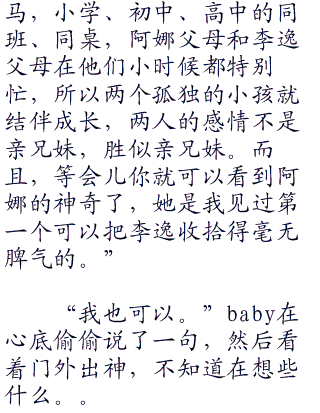 马，小学、初中、高中的同
班、同桌，阿娜父母和李逸
父母在他们小时候都特别
忙，所以两个孤独的小孩就
结伴成长，两人的感情不是
亲兄妹，胜似亲兄妹。而
且，等会儿你就可以看到阿
娜的神奇了，她是我见过第
一个可以把李逸收拾得毫无
脾气的。”
“我也可以。”baby在
心底偷偷说了一句，然后看
着门外出神，不知道在想些
什么。。